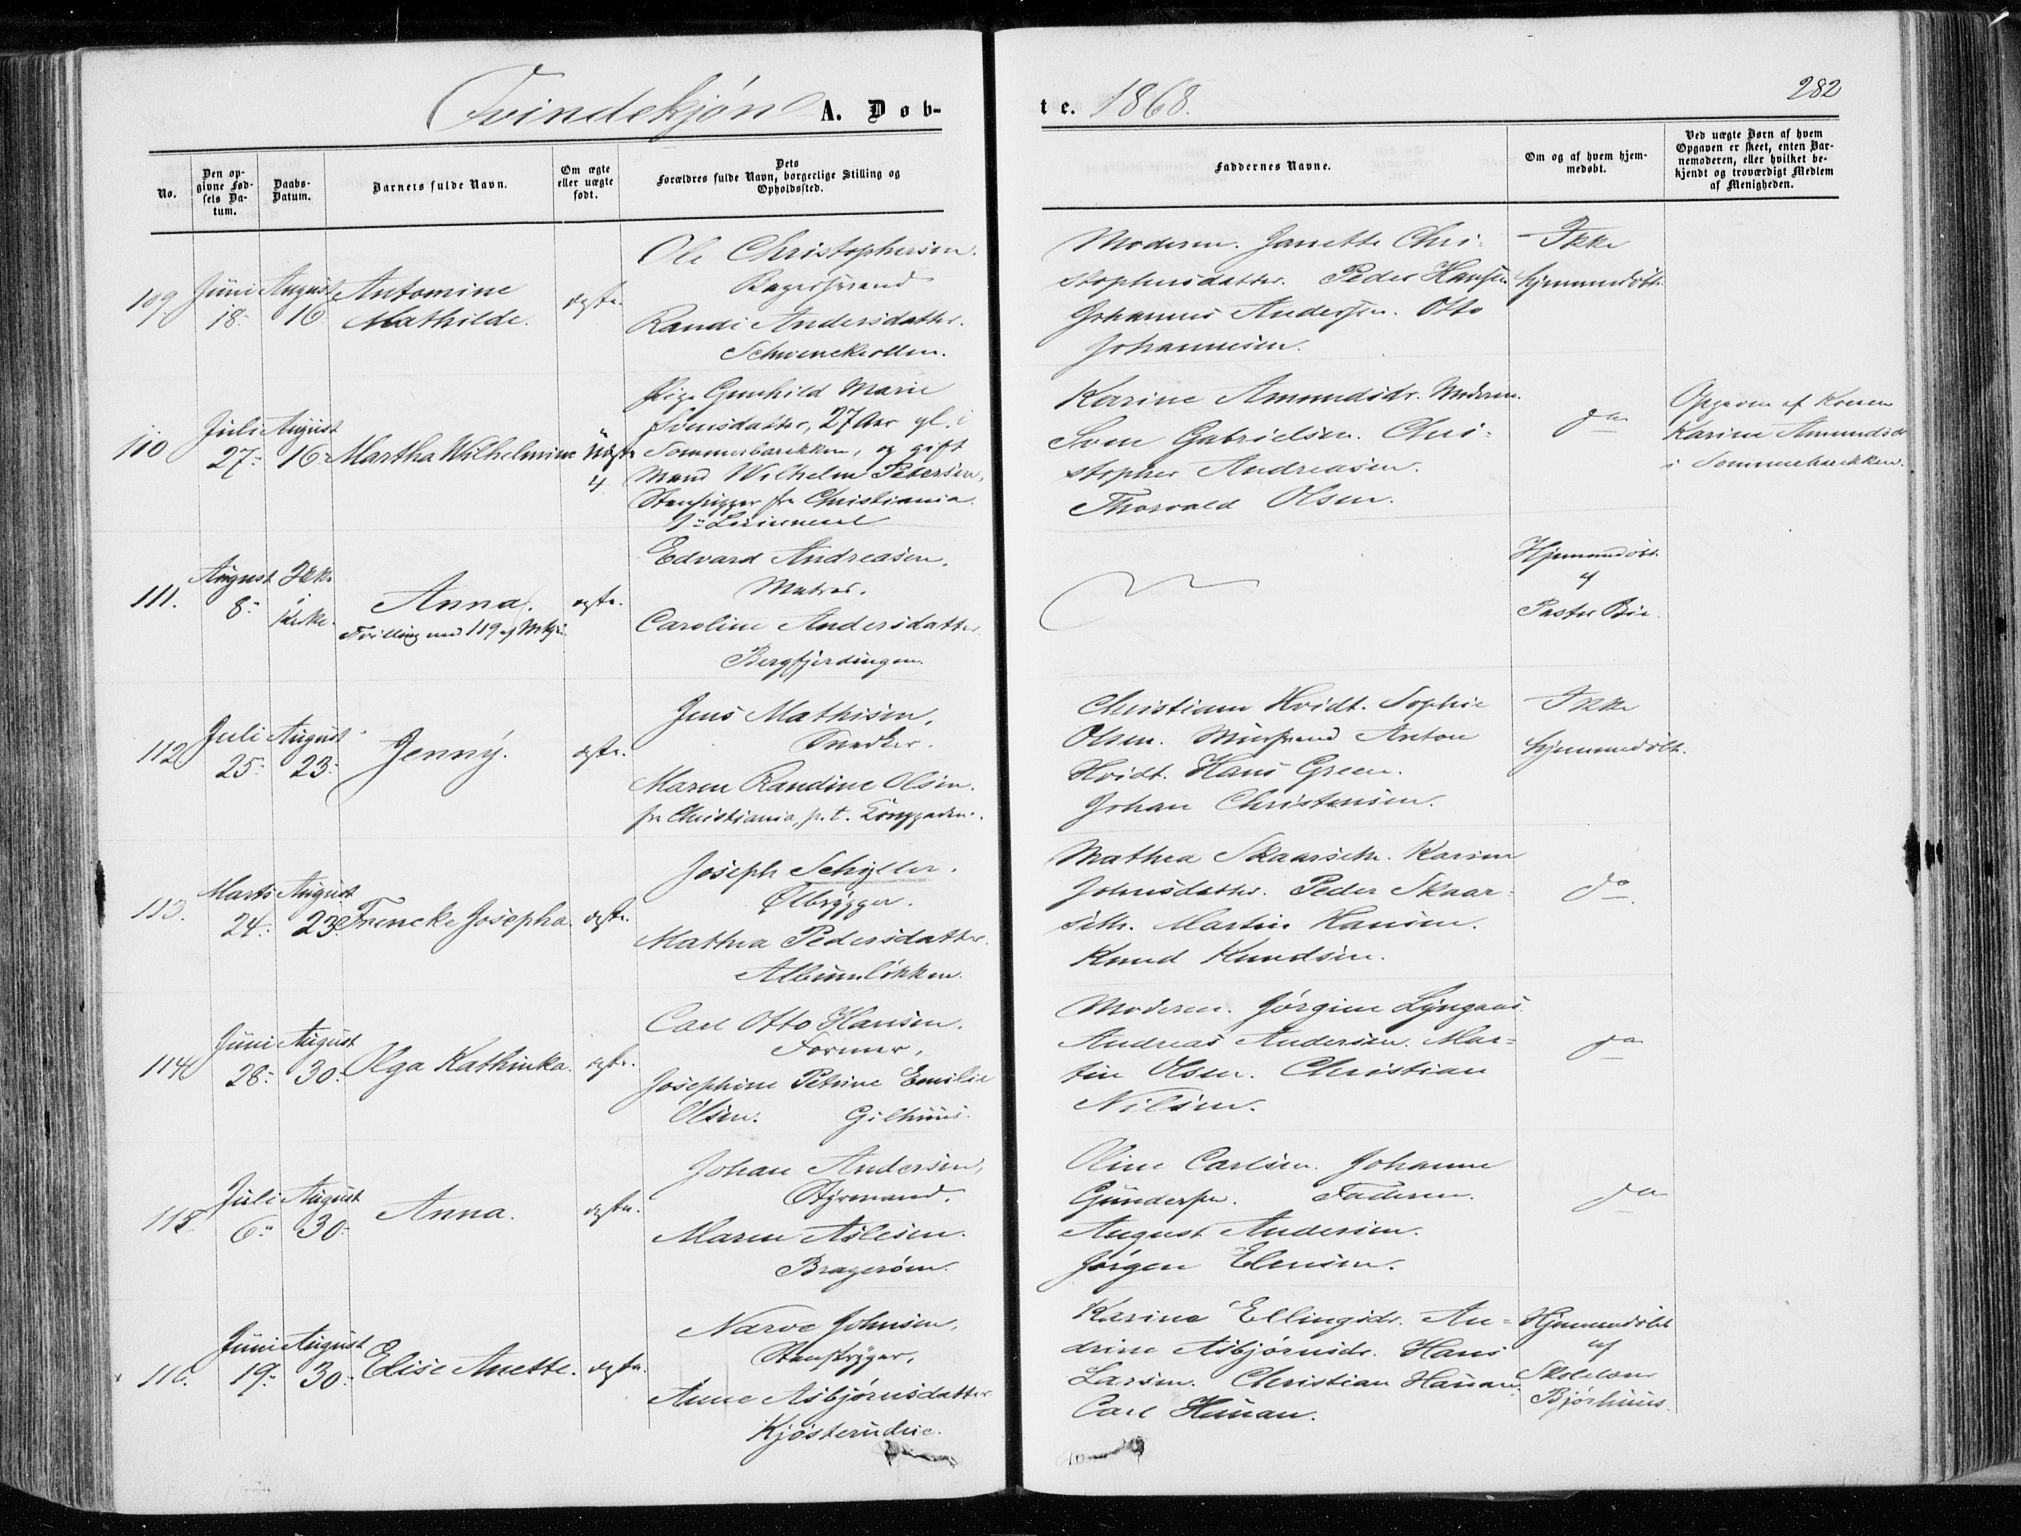 282
Qvindekjøn A. Døb-
te. 1868.
No.
Den op-
givne Fød-
sels Da-
tum.
Daabs-
Datum.
Barnets fulde Navn.
Om ægte
eller uægte
født.
Dets
Forældres fulde Navn, borgerlige Stilling og
Opholdssted.
Faddernes Navne.
Om og af hvem hjem-
medøbt.
Ved uægte Børn af hvem
Opgaven er skeet, enten Bar-
nemoderen, eller hvilket be-
kjendt og troværdigt Medlem
af Menigheden.
109.
Juni
18.
August
16
Antomine
Mathilde.
ægte.
Ole Christophersen.
Bagersvend
Randi Andersdatter.
Schwenckeollen.
Moderen. Janette Chri-
stophersdatter. Peder Hansen
Johannes Anderssen. Otto
Johannesen.
Ikke
hjemmedøbt.
110
Juli
27.
August
16.
Martha Wilhelmine
Uægte
4
Pige Gunhild Marie
Svensdatter, 27 Aar gl. i
Sommerbakken, og gift
Mand Wilhelm Petersen,
fra Christiania.
Karine Amundsdr. Moderen.
Sven Gabrielsen. Chri-
stopher Andreasen.
Thorvald Olsen.
do
Opgaven af Konen
Karine Amundsdr
i Sommerbakken.
111.
August
8.
Ikke
i
Kirke.
Anna.
Tvilling med 119 af Mkjøn.
ægte.
Edvard Andreasen,
Matros.
Caroline Andersdatter
Bergfjerdingen.
Hjemmedøbt
af
Pastor
112
Juli
25.
August
23.
Jenny.
ægte.
Jens Mathisen,
Snedker.
Maren Randine Olsen.
fra Christiania, p. t. Konggaden.
Christiane Hvidt. Sophie
Olsen. Muursvend Anton
Hvidt. Hans Green.
Johan Christensen.
Ikke
hjemmedøbt.
113.
Marts
24.
August
23.
Frencke Josepha.
ægte.
Joseph Schyller.
Ølbrygger.
Mathea Pedersdatter.
Albumløkken.
Mathea Skaarseth. Karen
Johnsdatter. Peder Skaar-
seth. Martin Hansen.
Knud Knudsen.
do.
114
Juni
28.
August
30.
Olga Kathinka.
ægte.
Carl Otto Hansen.
Former.
Josephine Petrine Emilie
Olsen. Gilhuus.
Moderen. Jørgine Lyngaas
Andreas Andersen. Mar-
tin Olsen. Christian
Nilsen.
do
115
Juli
6.
August
30.
Anna.
ægte.
Johan Andersen,
Styrmand.
Maren Aslesen.
Bragerøen.
Oline Carlsen. Johanne
Gundersen. Faderen.
August Andersen.
Jørgen Elensen.
do
116.
Juni
19.
August
30.
Elise Anette.
ægte.
Narve Johnsen,
Anne Asbjørnsdatter
Kjøsterudeie.
Karine Ellingsdr. An-
drine Asbjørnsdr. Hans
Larsen. Christian Hauan
Carl Hauan.
Hjemmedøbt
af
Skolelærer
Bjørhuus.